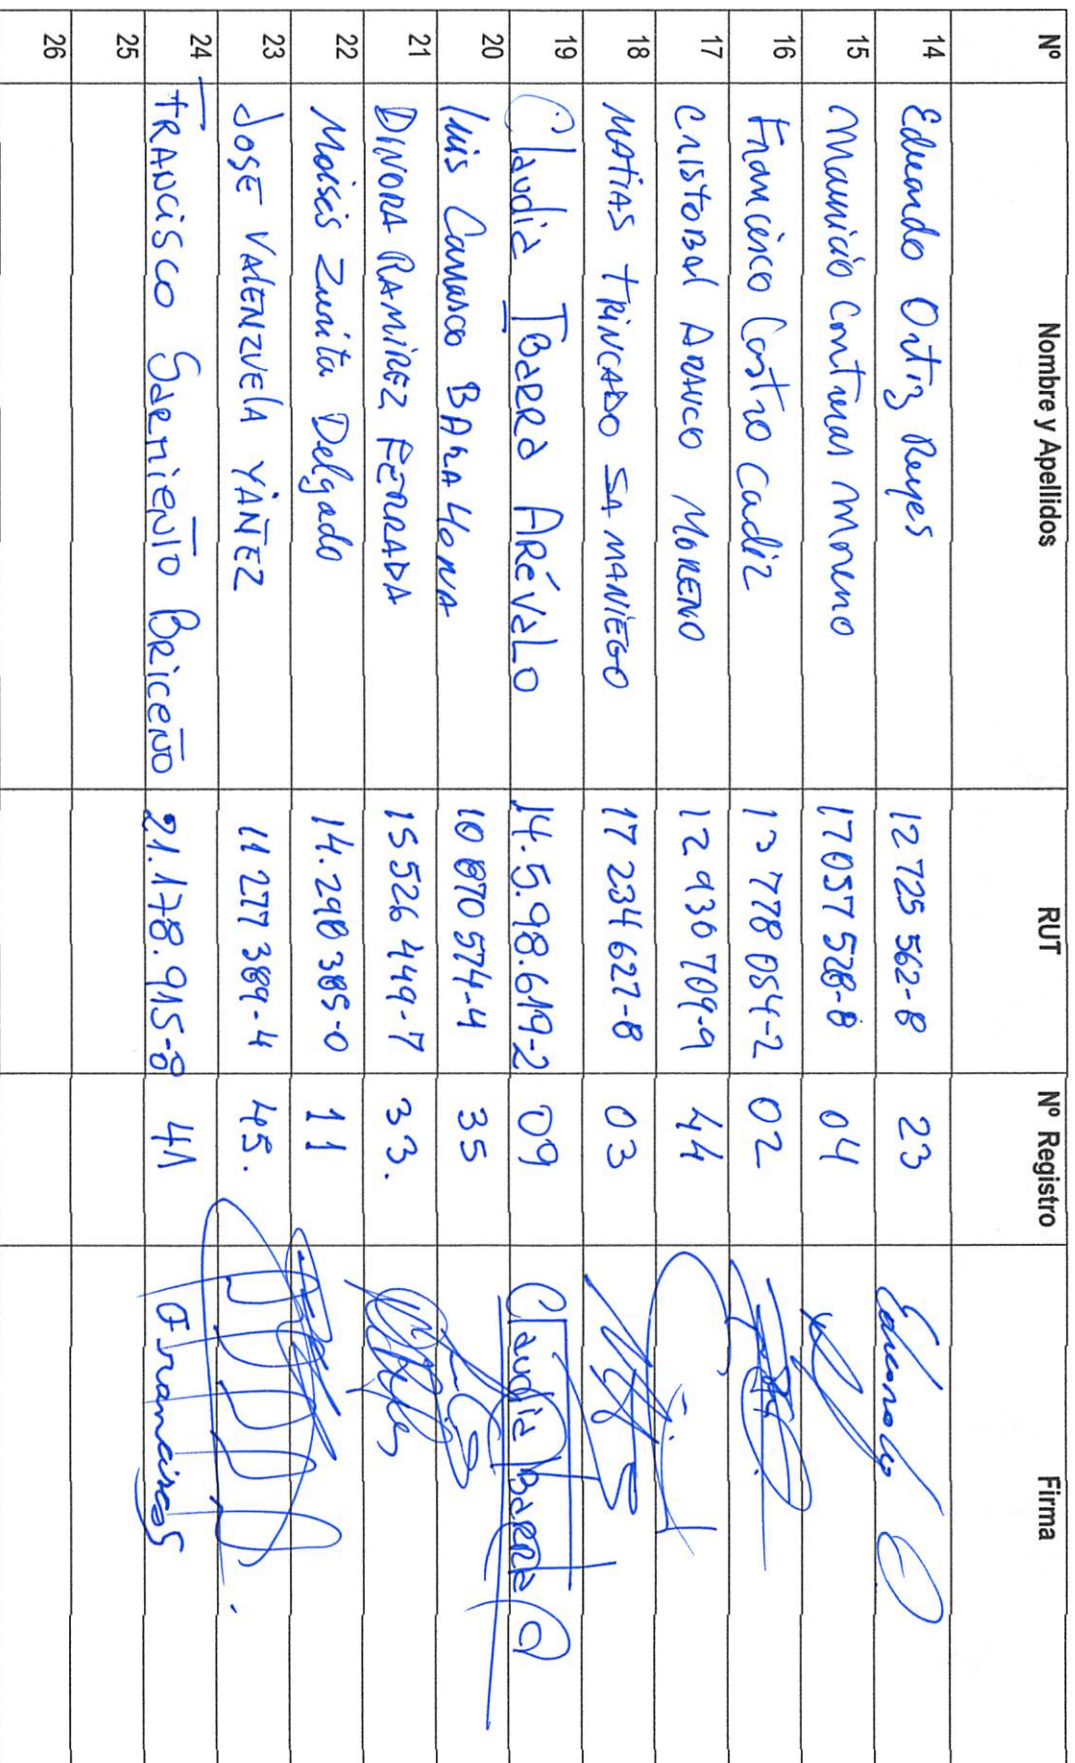 Nº Nombre y Apellidos RUT Nº Registro Firma
14 Eduardo Ortiz Reyes 12 725 562-8 23 Eduardo O
15 Mauricio Contreras Moreno 17 057 528-8 04
16 Francisco Castro Cadiz 13 778 054-2 02
17 CRISTOBAL ARAUCO MORENO 12 930 709-9 44
18 MATIAS TRINCADO SAMANIEGO 17 234 627-8 03
19 Claudia IBARRA ARÉVALO 14.5.98.619-2 09 Claudia IBARRA A
20 Luis Carrasco BARAHONA 10 870 574-4 35
21 DINORA RAMIREZ FERRADA 15 526 449-7 33.
22 Moisés Zurita Delgado 14.298 385-0 11
23 JOSE VALENZUELA YÁÑEZ 11 277 389-4 45.
24 FRANCISCO SARMIENTO BRICEÑO 21.178.915-8 41 FranciscoS
25
26